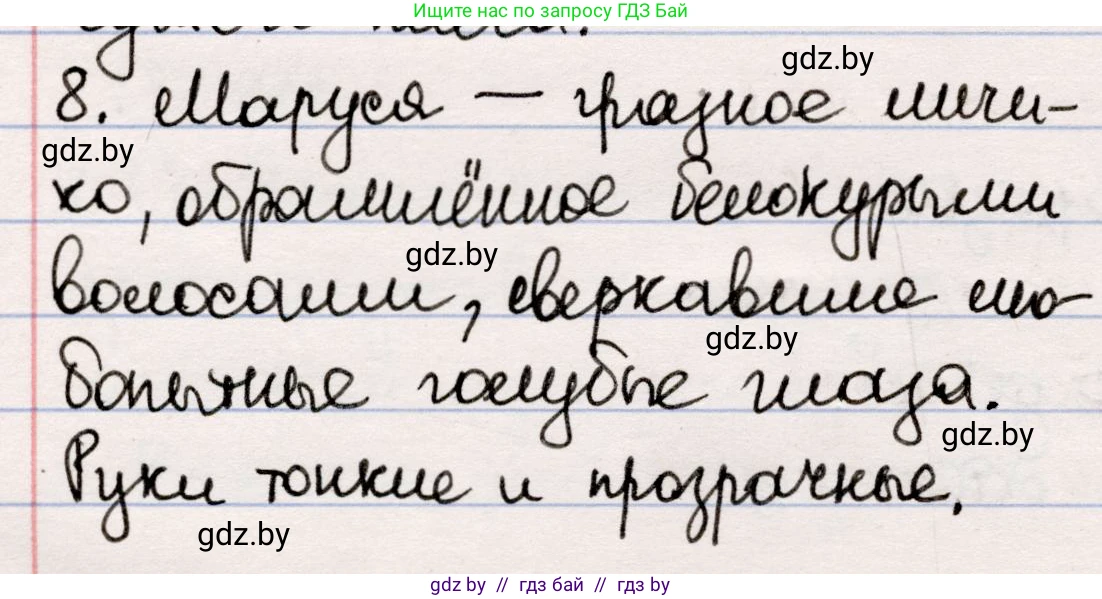 Ищите нас по запросу ГДЗ Бай
gdz.by
8. Маруся — грязное личи-
gdz.by
ко, обрамлённое белокурыми
gdz.by
волосами, сверкавшие лю-
gdz.by
бопытные голубые глаза.
gdz.by
Руки тонкие и прозрачные.
gdz.by
gdz by // гдз бай // гдз by